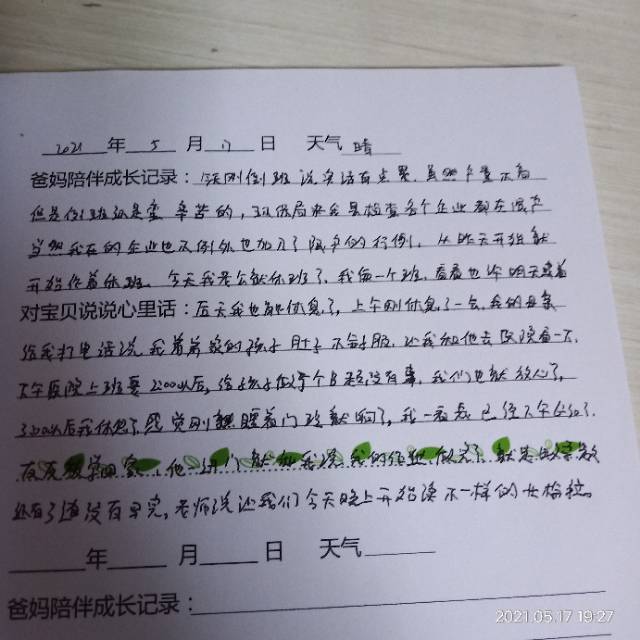 2021 年 5 月 17 日 天气 晴
爸妈陪伴成长记录：今天刚倒班说实话有点累，虽然产量不高
但是倒班还是蛮辛苦的，环保局来会县检查各个企业都在限产
当然我在的企业也不例外也加入了限产的行例，从昨天开始就
开始作着休班。今天我是公就休班了，我每一个班，看看也许明天或着
对宝贝说说心里话：后天我也能休息了，上午刚休息了一会，我的母亲
给我打电话说，我着弟家的孩子肚子不舒服，让我和他去医院看一下，
下午医院上班要2:00以后，给孩子做了个B超没有事，我们也就放心了，
3:00以后我休息了感觉刚睡着门铃就响了，我一看表已经下午
放学回家，他一进门就和我说我的作业做完了，就是数学
还有3道没有写完，老师说让我们今天晚上开始读不一样的
年 月 日 天气
爸妈陪伴成长记录：
2021.05.17 19:27